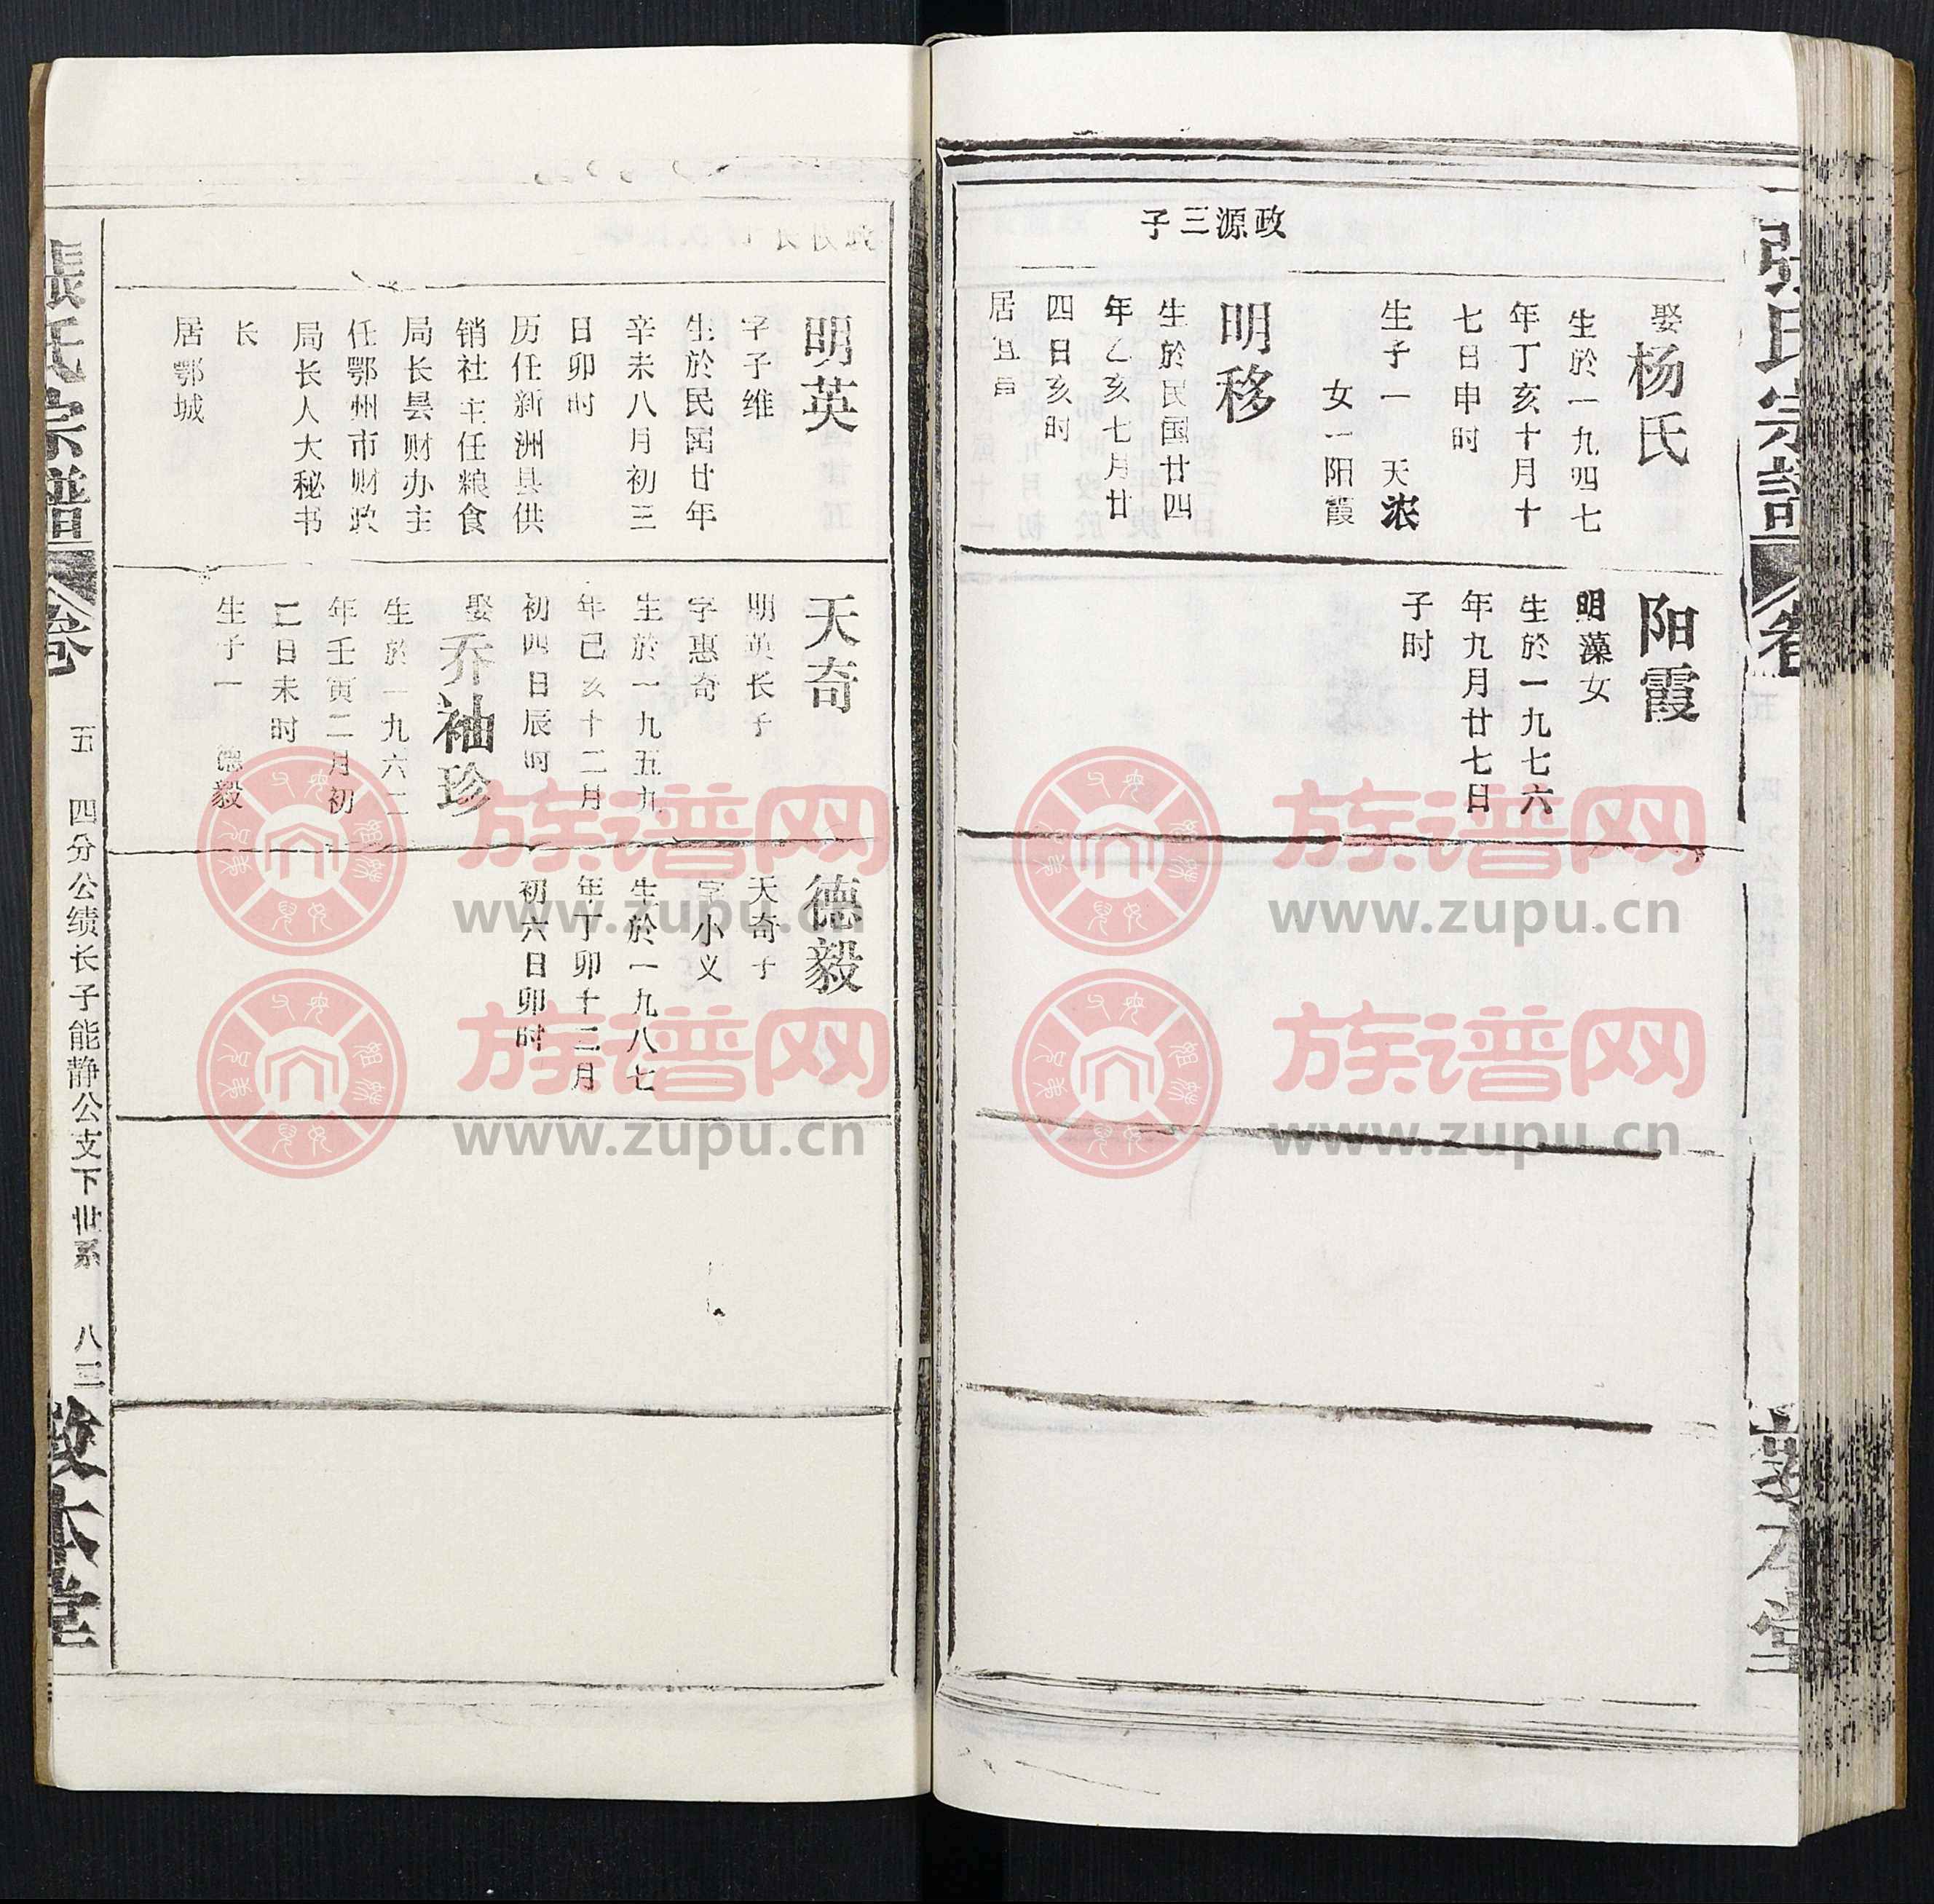 張氏宗譜
卷
政源三子
娶杨氏
生於一九四七
年丁亥十月十
七日申时
生子一 天浓
女一阳霞
明移
生於民国廿四
年乙亥七月廿
四日亥时
居宜昌
阳霞
明藻女
生於一九七六
年九月廿七日
子时
明英
字子维
生於民国廿年
辛未八月初三
日卯时
历任新洲县供
销社主任粮食
局长县财办主
任鄂州市财政
局长人大秘书
长
居鄂城
天奇
明英长子
字惠奇
生於一九五九
年己亥十二月
初四日辰时
娶乔袖珍
生於一九六二
年壬寅二月初
二日未时
生子一 德毅
德毅
天奇子
字小义
生於一九八七
年丁卯十二月
初六日卯时
張氏宗譜
卷
五 四分公绩长子能静公支下世系 八三
敦本堂
族谱网
www.zupu.cn
族谱网
www.zupu.cn
族谱网
www.zupu.cn
族谱网
www.zupu.cn